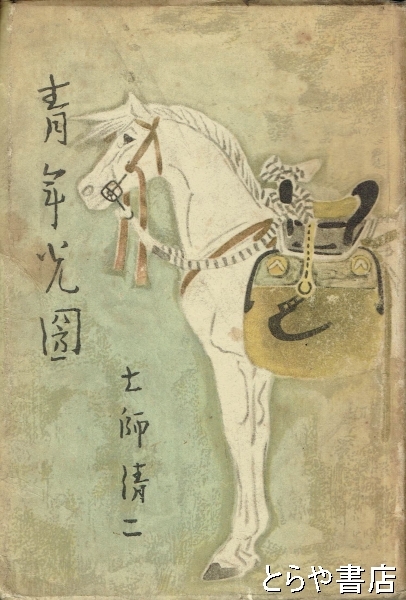 青年光圀
土師清二
とらや書店